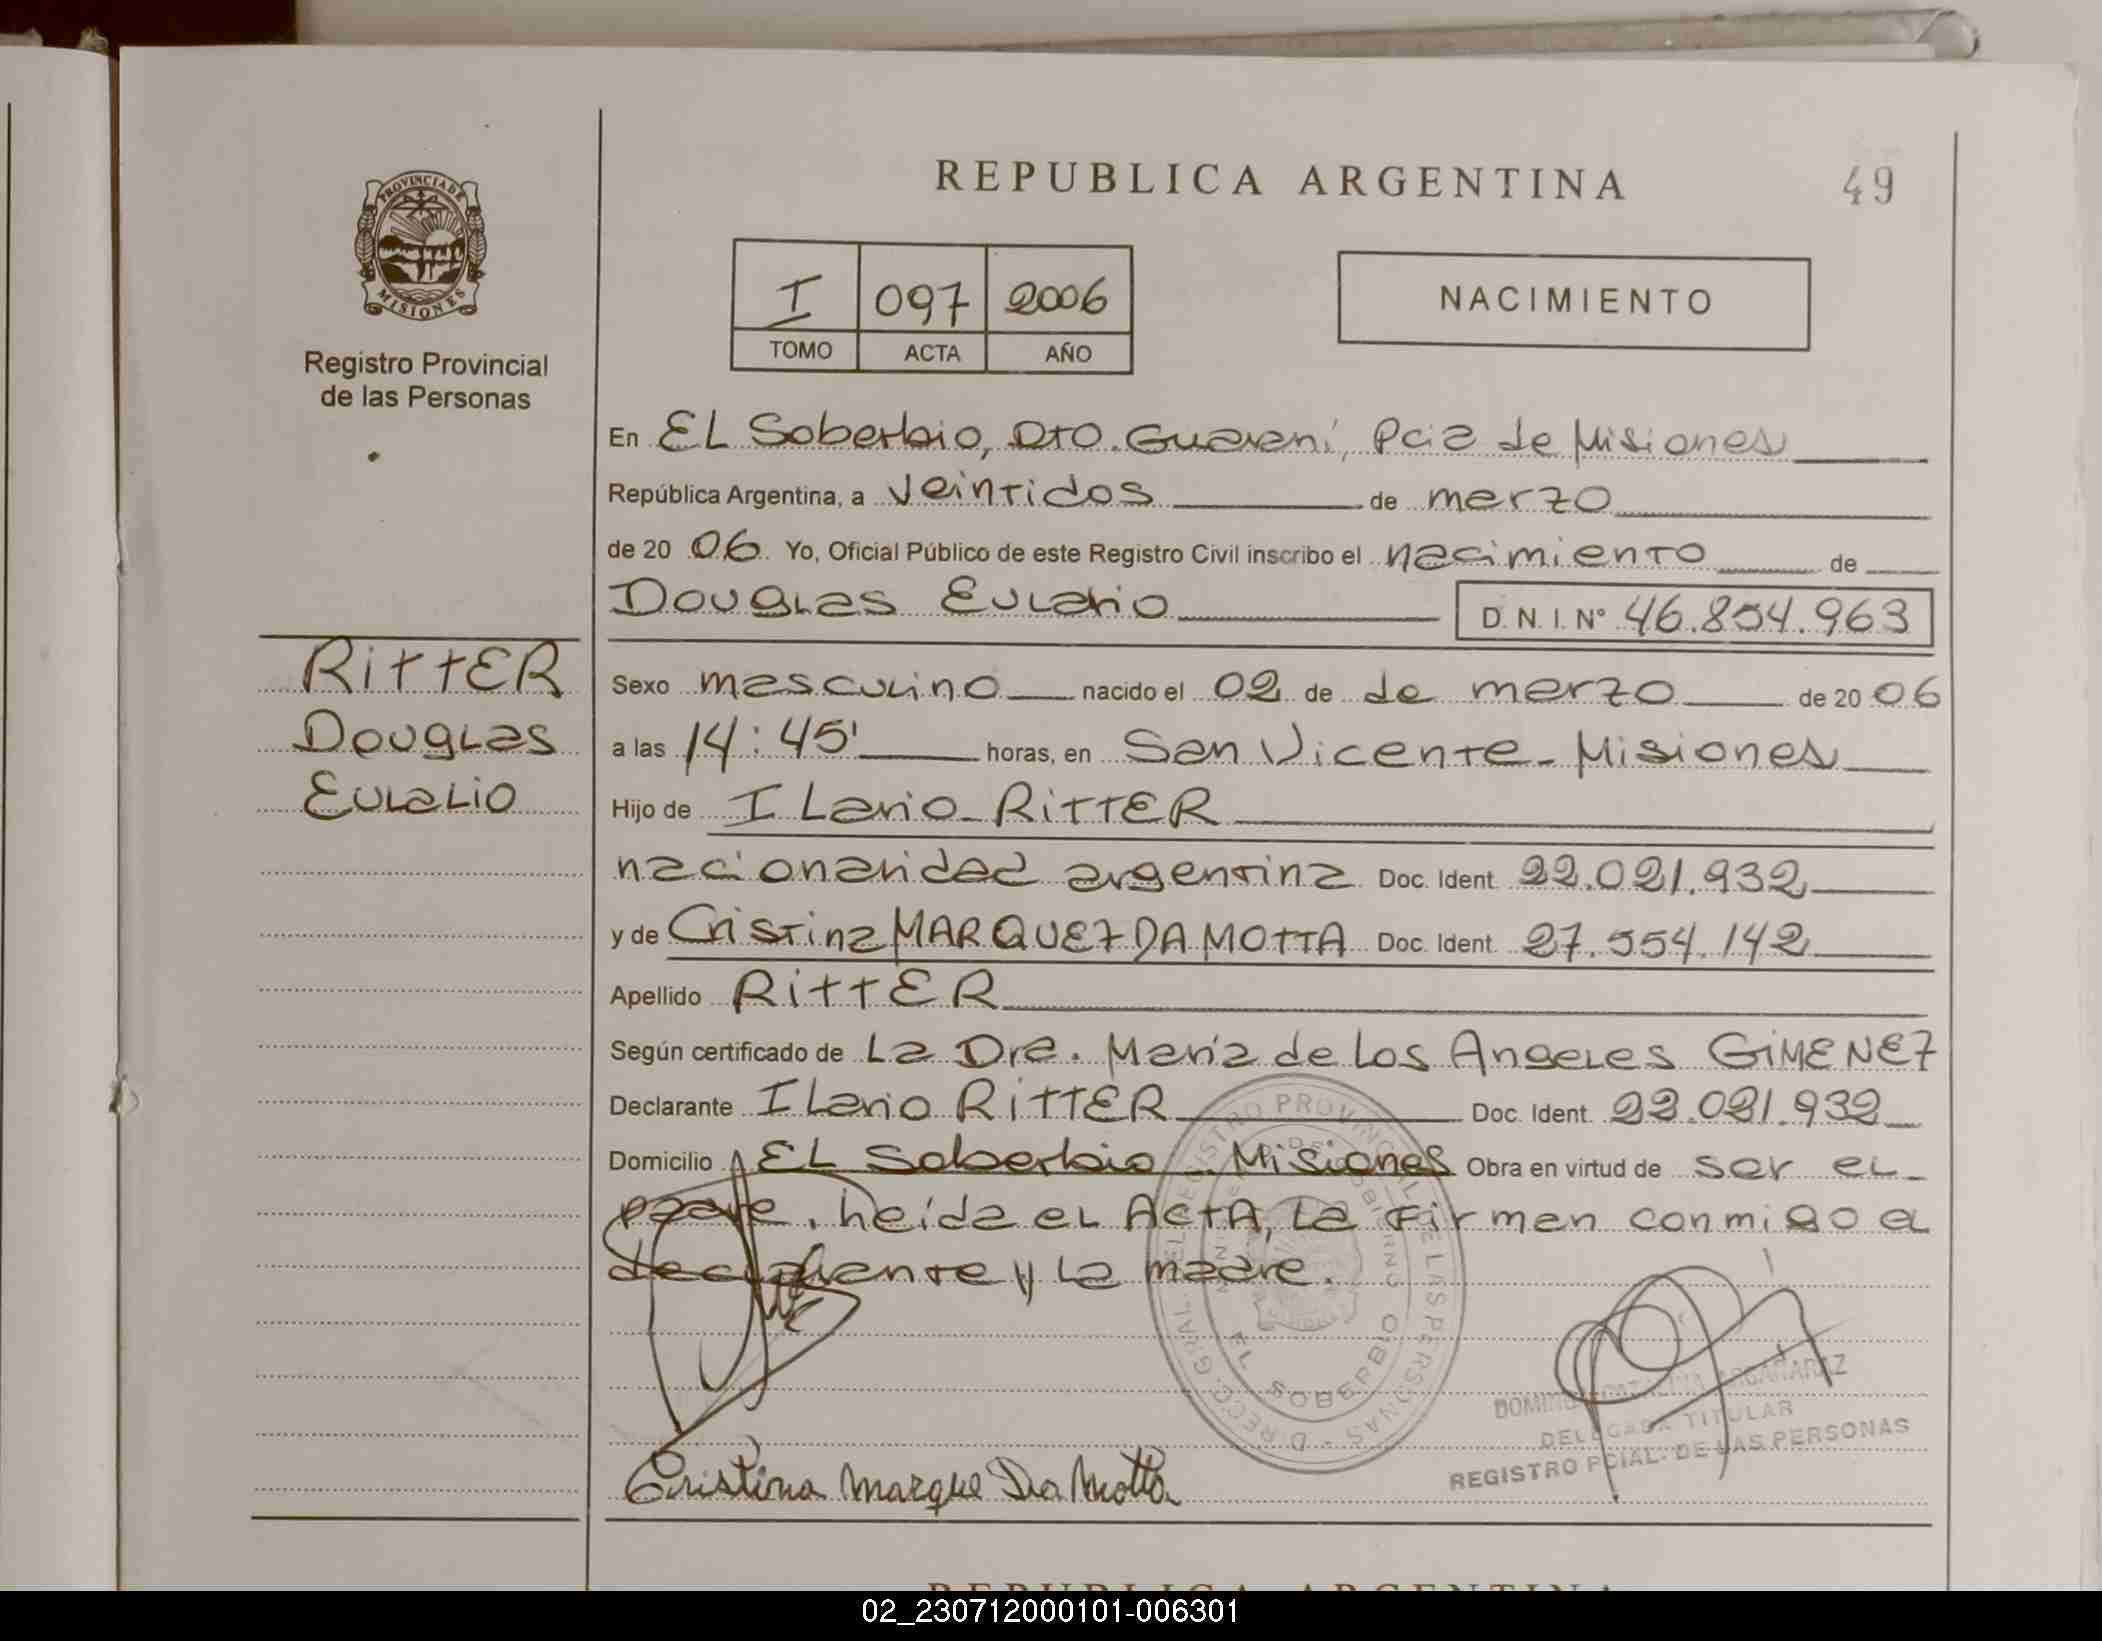 REPUBLICA ARGENTINA
49
PROVINCIA DE
MISIONES
Registro Provincial
de las Personas
I 097 2006
TOMO ACTA AÑO
NACIMIENTO
En EL Soberbio, Dto. Guarani, Pcia de Misiones
República Argentina, a veintidos de marzo
de 20 06 Yo, Oficial Público de este Registro Civil inscribo el nacimiento de
Douglas Eulalio D. N. I. N° 46.854.963
RITTER
Douglas
Eulalio
Sexo masculino nacido el 02 de de marzo de 20 06
a las 14:45' horas, en San Vicente - Misiones
Hijo de ILario RITTER
nacionalidad argentina Doc. Ident. 22.021.932
y de Cristina MARQUEZ DA MOTTA Doc. Ident. 27.554.142
Apellido RITTER
Según certificado de La Dra. María de Los Angeles GIMENEZ
Declarante ILario RITTER Doc. Ident. 22.021.932
Domicilio EL Soberbio - Misiones Obra en virtud de ser el
padre. Leída el ActA, la firman conmigo el
declarante y la madre.
DIRECC. GRAL. DEL REGISTRO PROVINCIAL DE LAS PERSONAS
EL SOBERBIO
DELEGADA TITULAR
REGISTRO PCIAL. DE LAS PERSONAS
Cristina Marque Da Motta
REPUBLICA ARGENTINA
02_230712000101-006301